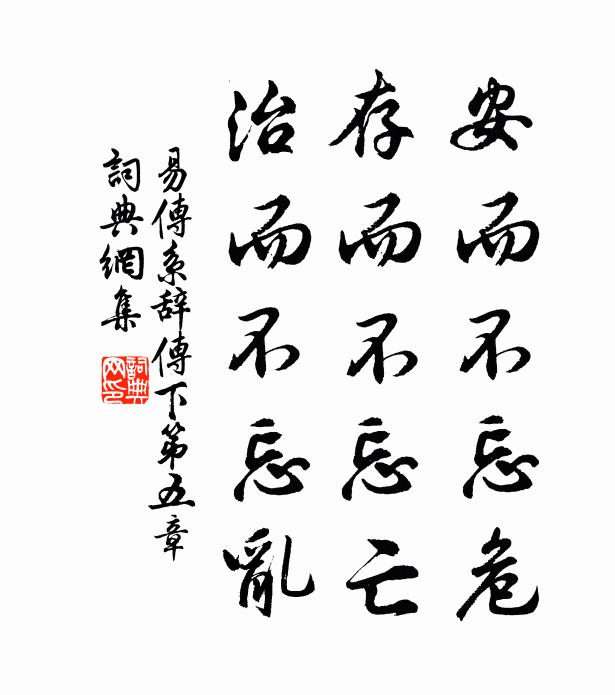 安而不忘危
存而不忘亡
治而不忘亂
易傳系辞傳下第五章
詞典網集
詞典网印